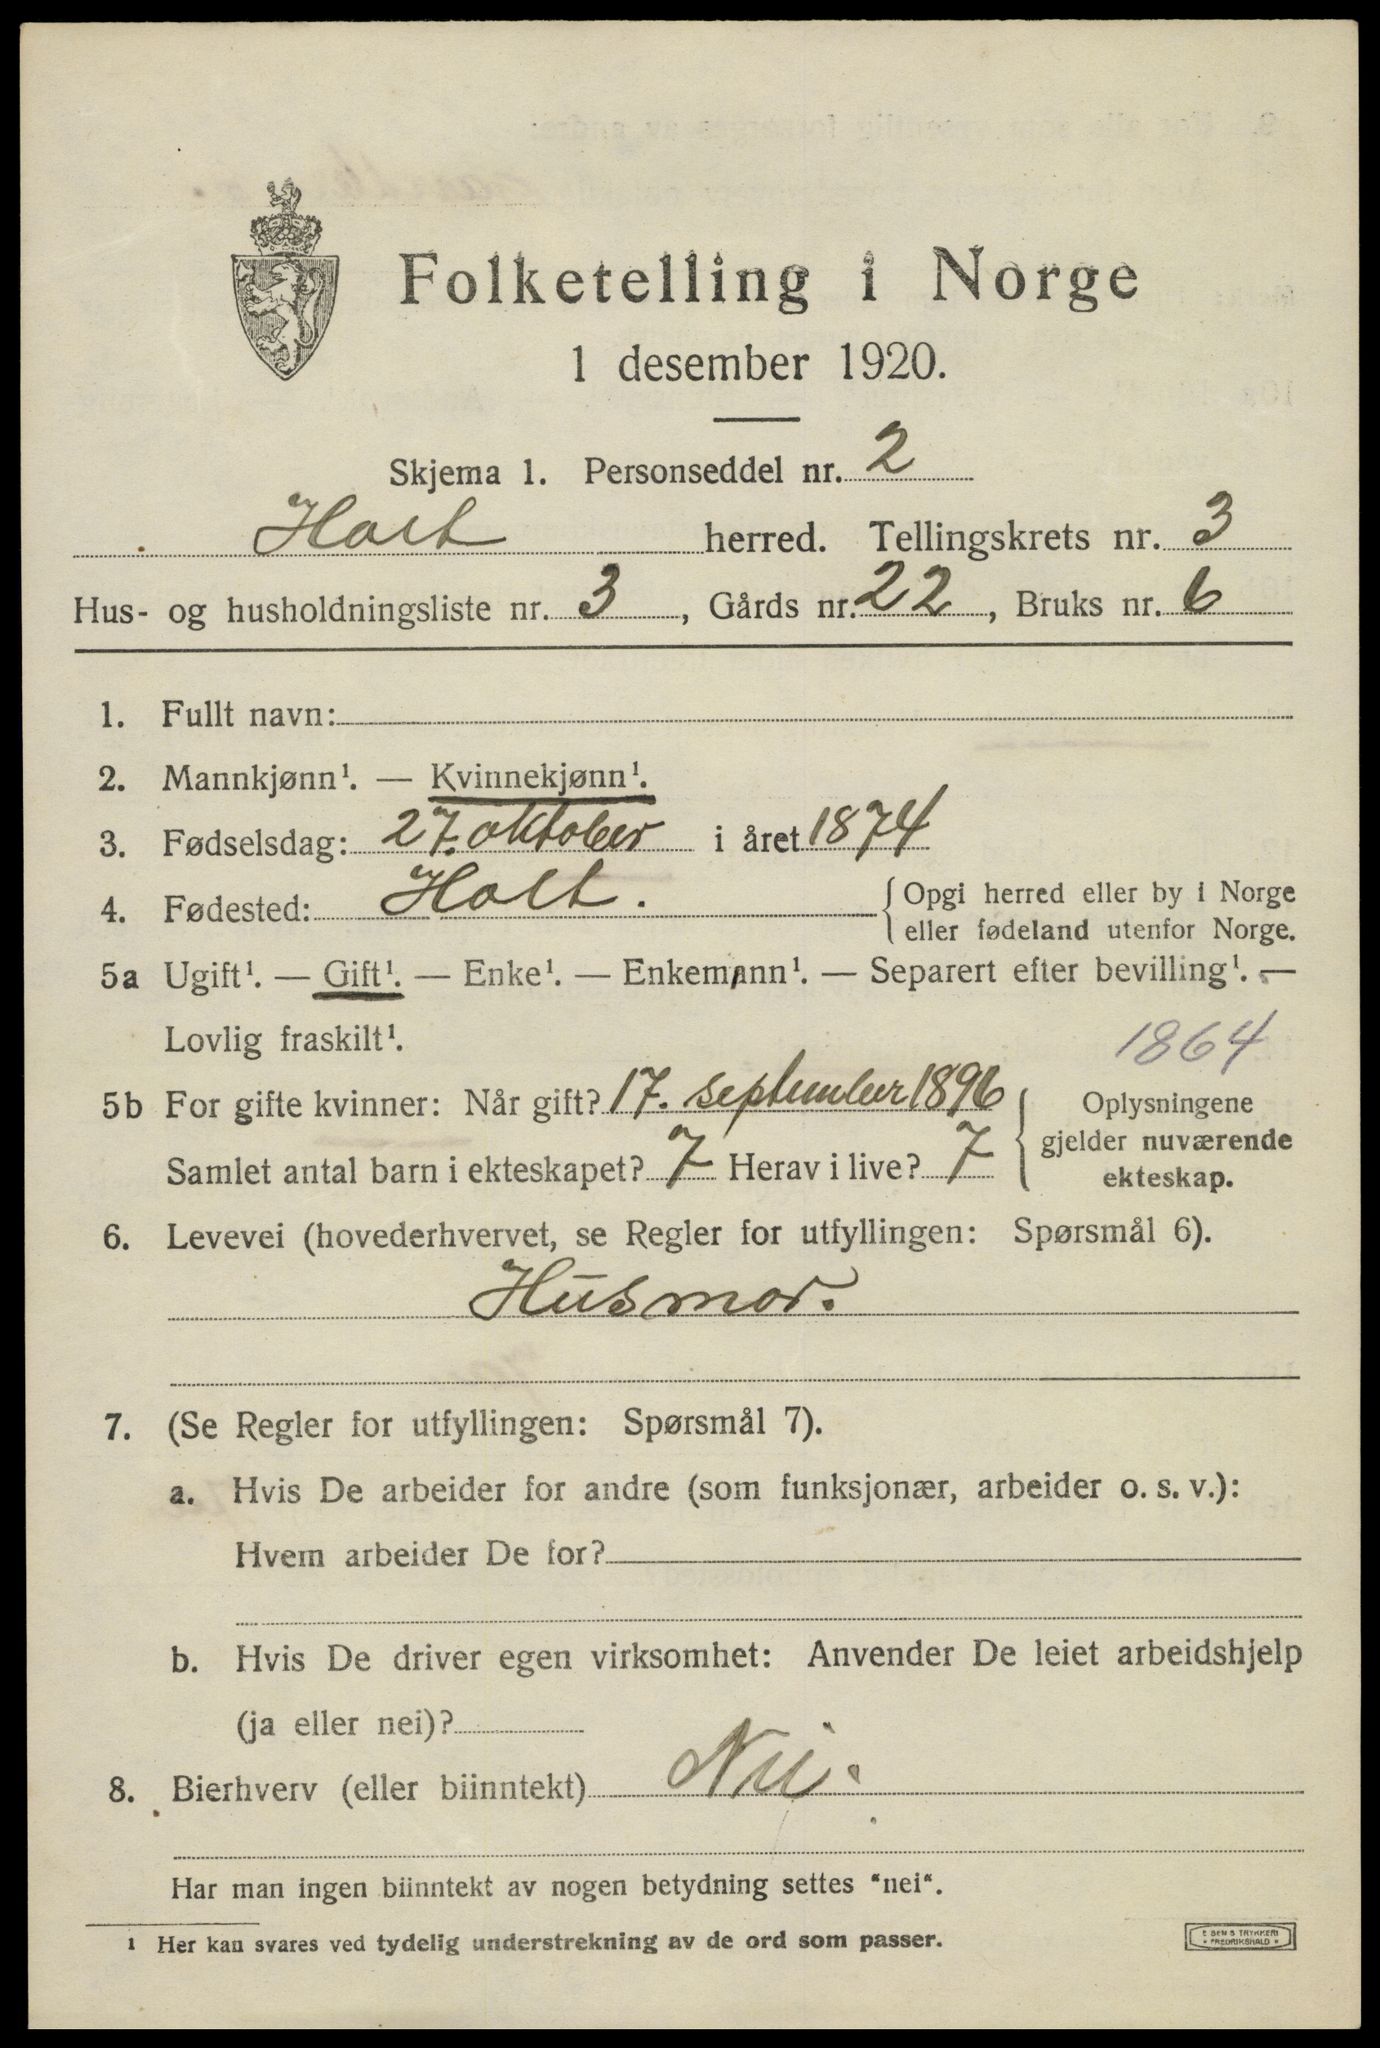 Folketelling i Norge
1 desember 1920.
Skjema 1. Personseddel nr. 2
Holt herred. Tellingskrets nr. 3
Hus- og husholdningsliste nr. 3, Gårds nr. 22, Bruks nr. 6
1. Fullt navn:
2. Mannkjønn¹. — Kvinnekjønn¹.
3. Fødselsdag: 27. oktober i året 1874
4. Fødested: Holt. { Opgi herred eller by i Norge
eller fødeland utenfor Norge.
5a Ugift¹. — Gift¹. — Enke¹. — Enkemann¹. — Separert efter bevilling¹. —
Lovlig fraskilt¹.
1864
5b For gifte kvinner: Når gift? 17. september 1896
Samlet antal barn i ekteskapet? 7 Herav i live? 7
{ Oplysningene
gjelder nuværende
ekteskap.
6. Levevei (hovederhvervet, se Regler for utfyllingen: Spørsmål 6).
Husmor.
7. (Se Regler for utfyllingen: Spørsmål 7).
a. Hvis De arbeider for andre (som funksjonær, arbeider o. s. v.):
Hvem arbeider De for?
b. Hvis De driver egen virksomhet: Anvender De leiet arbeidshjelp
(ja eller nei)?
8. Bierhverv (eller biinntekt) Nei.
Har man ingen biinntekt av nogen betydning settes "nei".
¹ Her kan svares ved tydelig understrekning av de ord som passer.
E SEM S TRYKKERI
FREDRIKSHALD